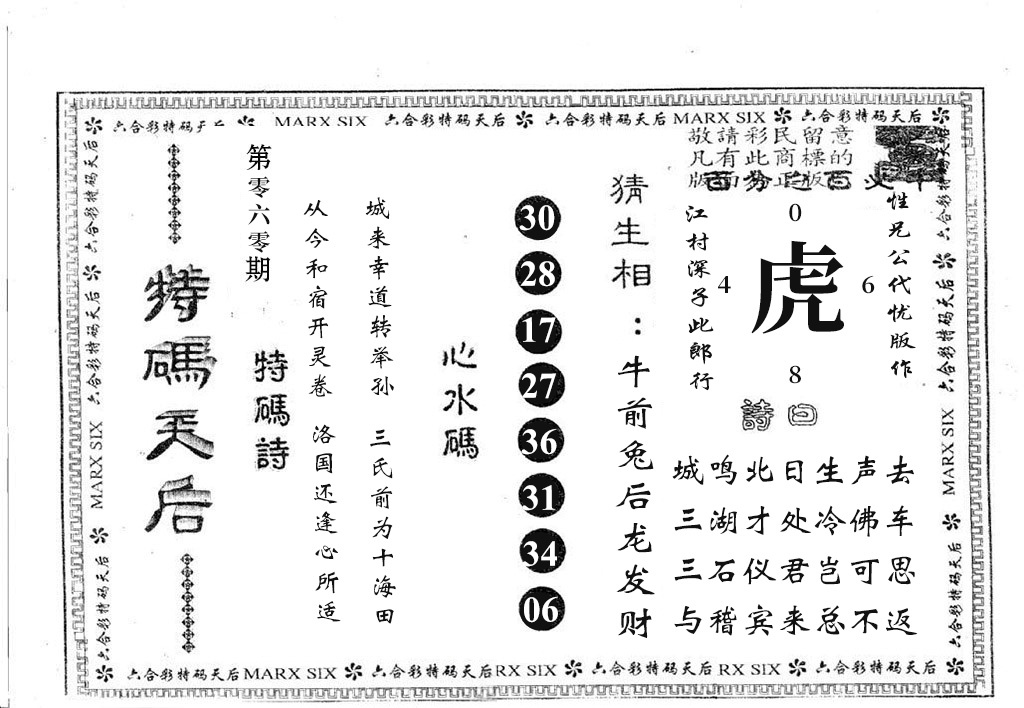 六合彩特码天后 MARX SIX 六合彩特码天后 六合彩特码天后 MARX SIX 六合彩特码天后
敬請彩民留意
凡有此商標的
版面为正版
百分之百
性兄公代忧版作
江村深子此郎行
0
4
虎
6
8
詩曰
城鸣北日生声去
三湖才处冷佛车
三石仪君岂可思
与稽宾来总不返
猜生相：牛前兔后龙发财
30
28
17
27
36
31
34
06
心水碼
城来幸道转举孙 三氏前为十海田
从今和宿开灵卷 洛国还逢心所适
特碼詩
第零六零期
特碼天后
六合彩特码天后 六合彩特码天后 MARX SIX 六合彩特码天后
六合彩特码天后 六合彩特码天后 MARX SIX 六合彩特码天后
六合彩特码天后MARX SIX 六合彩特码天后RX SIX 六合彩特码天后 RX SIX 六合彩特码天后